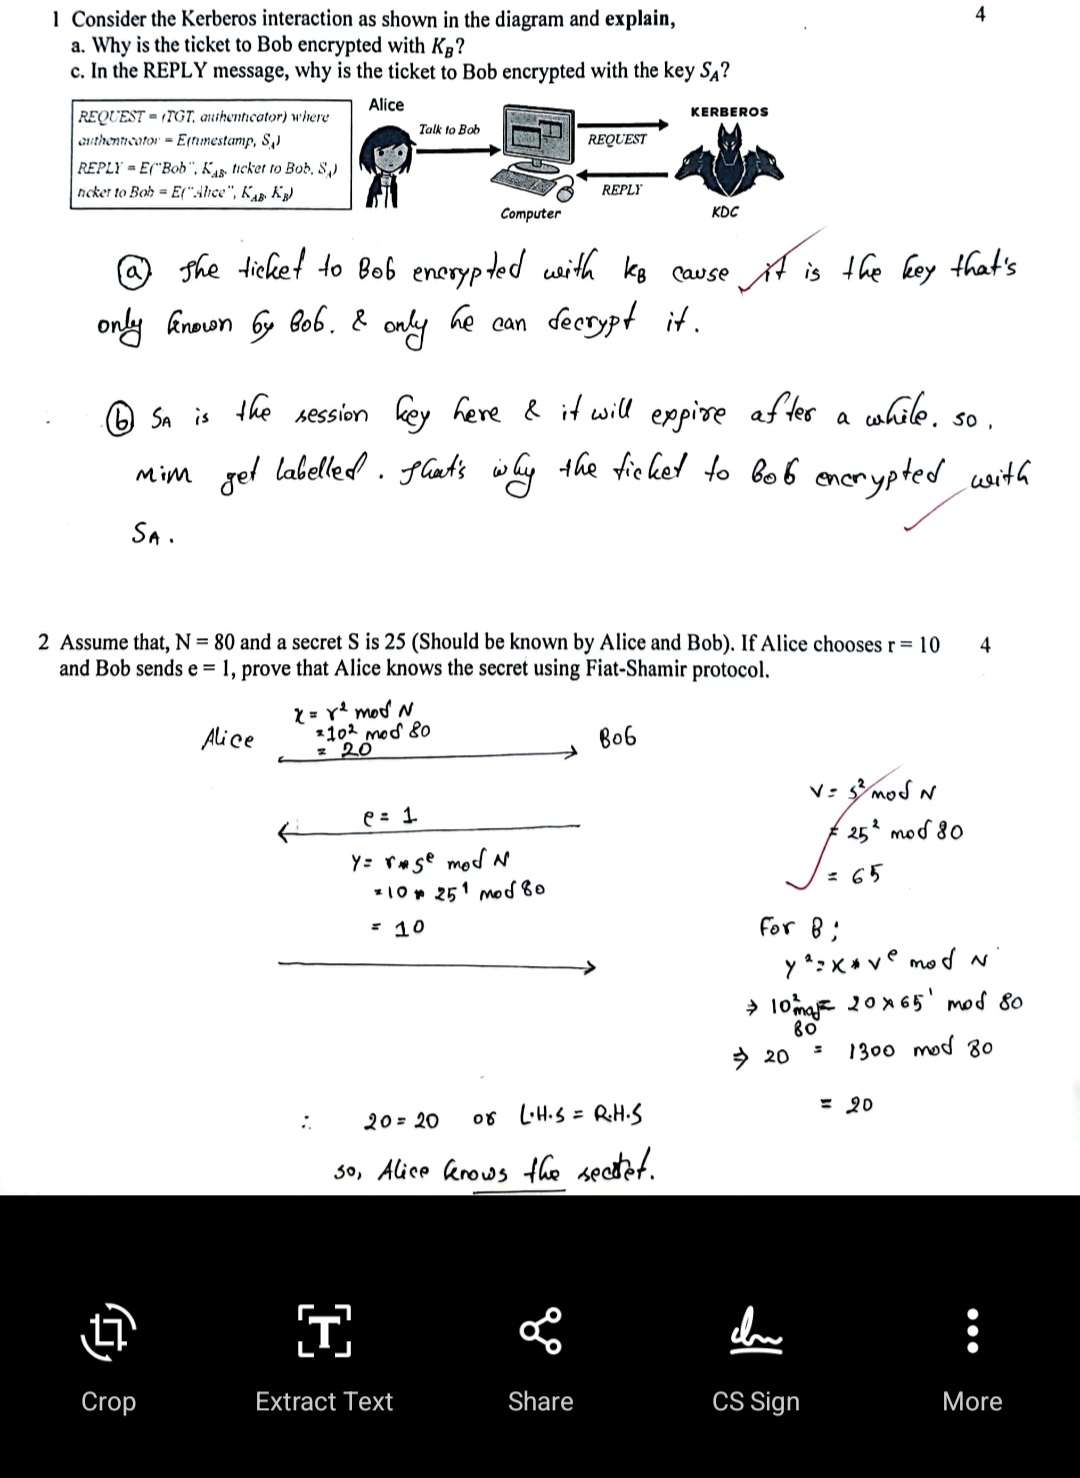 1 Consider the Kerberos interaction as shown in the diagram and explain,
4
a. Why is the ticket to Bob encrypted with K_B?
c. In the REPLY message, why is the ticket to Bob encrypted with the key S_A?
REQUEST = (TGT, authenticator) where
authenticator = E(timestamp, S_A)
REPLY = E("Bob", K_AB, ticket to Bob, S_A)
ticket to Bob = E("Alice", K_AB, K_B)
Alice
Talk to Bob
Computer
REQUEST
REPLY
KERBEROS
KDC
ⓐ The ticket to Bob encrypted with kB cause it is the key that's
only known by Bob. & only he can decrypt it.
ⓑ SA is the session key here & it will expire after a while. so,
MIM get labelled. That's why the ticket to Bob encrypted with
SA.
2 Assume that, N = 80 and a secret S is 25 (Should be known by Alice and Bob). If Alice chooses r = 10
4
and Bob sends e = 1, prove that Alice knows the secret using Fiat-Shamir protocol.
Alice
x = r² mod N
= 10² mod 80
= 20
Bob
e = 1
y = r * s^e mod N
= 10 * 25¹ mod 80
= 10
v = s² mod N
= 25² mod 80
= 65
For B;
y² = x * v^e mod N
⇒ 10² mod 80 = 20 × 65¹ mod 80
⇒ 20 = 1300 mod 80
= 20
∴ 20 = 20 or L.H.S = R.H.S
so, Alice knows the secret.
Crop
Extract Text
Share
CS Sign
More